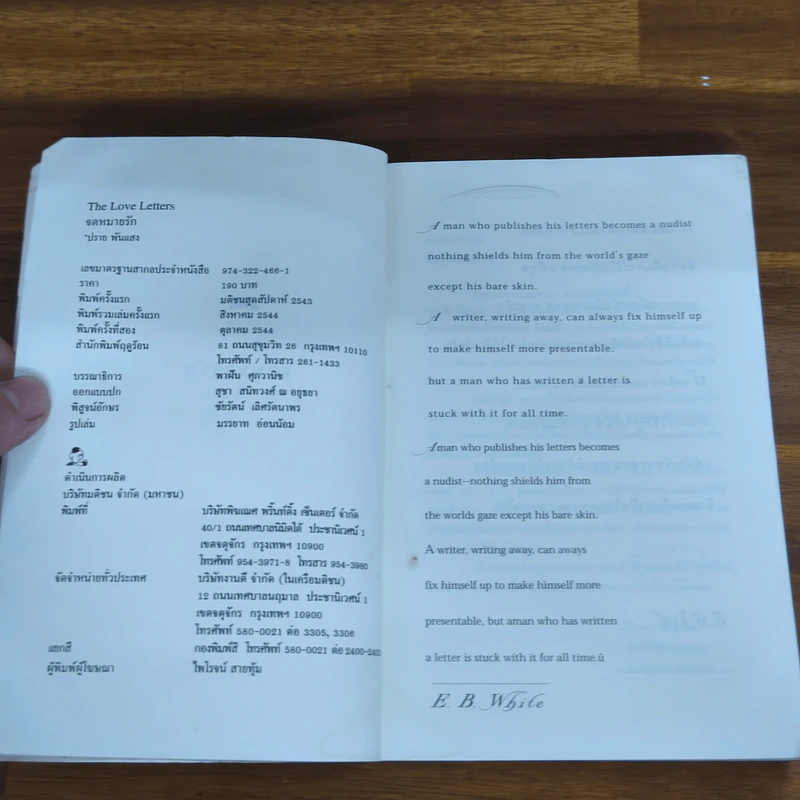 The Love Letters
จดหมายรัก
'ปราย พันแสง
เลขมาตรฐานสากลประจำหนังสือ 974-322-466-1
ราคา 190 บาท
พิมพ์ครั้งแรก มติชนสุดสัปดาห์ 2543
พิมพ์รวมเล่มครั้งแรก สิงหาคม 2544
พิมพ์ครั้งที่สอง ตุลาคม 2544
สำนักพิมพ์ฤดูร้อน 81 ถนนสุขุมวิท 26 กรุงเทพฯ 10110
โทรศัพท์ / โทรสาร 261-1433
บรรณาธิการ พาฝัน ศุภวานิช
ออกแบบปก สุชา สนิทวงศ์ ณ อยุธยา
พิสูจน์อักษร ชัยรัตน์ เลิศรัตนาพร
รูปเล่ม มรรยาท อ่อนน้อม
ดำเนินการผลิต
บริษัทมติชน จำกัด (มหาชน)
พิมพ์ที่ บริษัทพิฆเณศ พริ้นท์ติ้ง เซ็นเตอร์ จำกัด
40/1 ถนนเทศบาลนิมิตใต้ ประชานิเวศน์ 1
เขตจตุจักร กรุงเทพฯ 10900
โทรศัพท์ 954-3971-8 โทรสาร 954-3980
จัดจำหน่ายทั่วประเทศ บริษัทงานดี จำกัด (ในเครือมติชน)
12 ถนนเทศบาลนฤมาล ประชานิเวศน์ 1
เขตจตุจักร กรุงเทพฯ 10900
โทรศัพท์ 580-0021 ต่อ 3305, 3306
แยกสี กองพิมพ์สี โทรศัพท์ 580-0021 ต่อ 2400-2402
ผู้พิมพ์ผู้โฆษณา ไพโรจน์ สายทุ้ม
A man who publishes his letters becomes a nudist
nothing shields him from the world's gaze
except his bare skin.
A writer, writing away, can always fix himself up
to make himself more presentable,
but a man who has written a letter is
stuck with it for all time.
Aman who publishes his letters becomes
a nudist—nothing shields him from
the worlds gaze except his bare skin.
A writer, writing away, can aways
fix himself up to make himself more
presentable, but aman who has written
a letter is stuck with it for all time.û
E. B. White